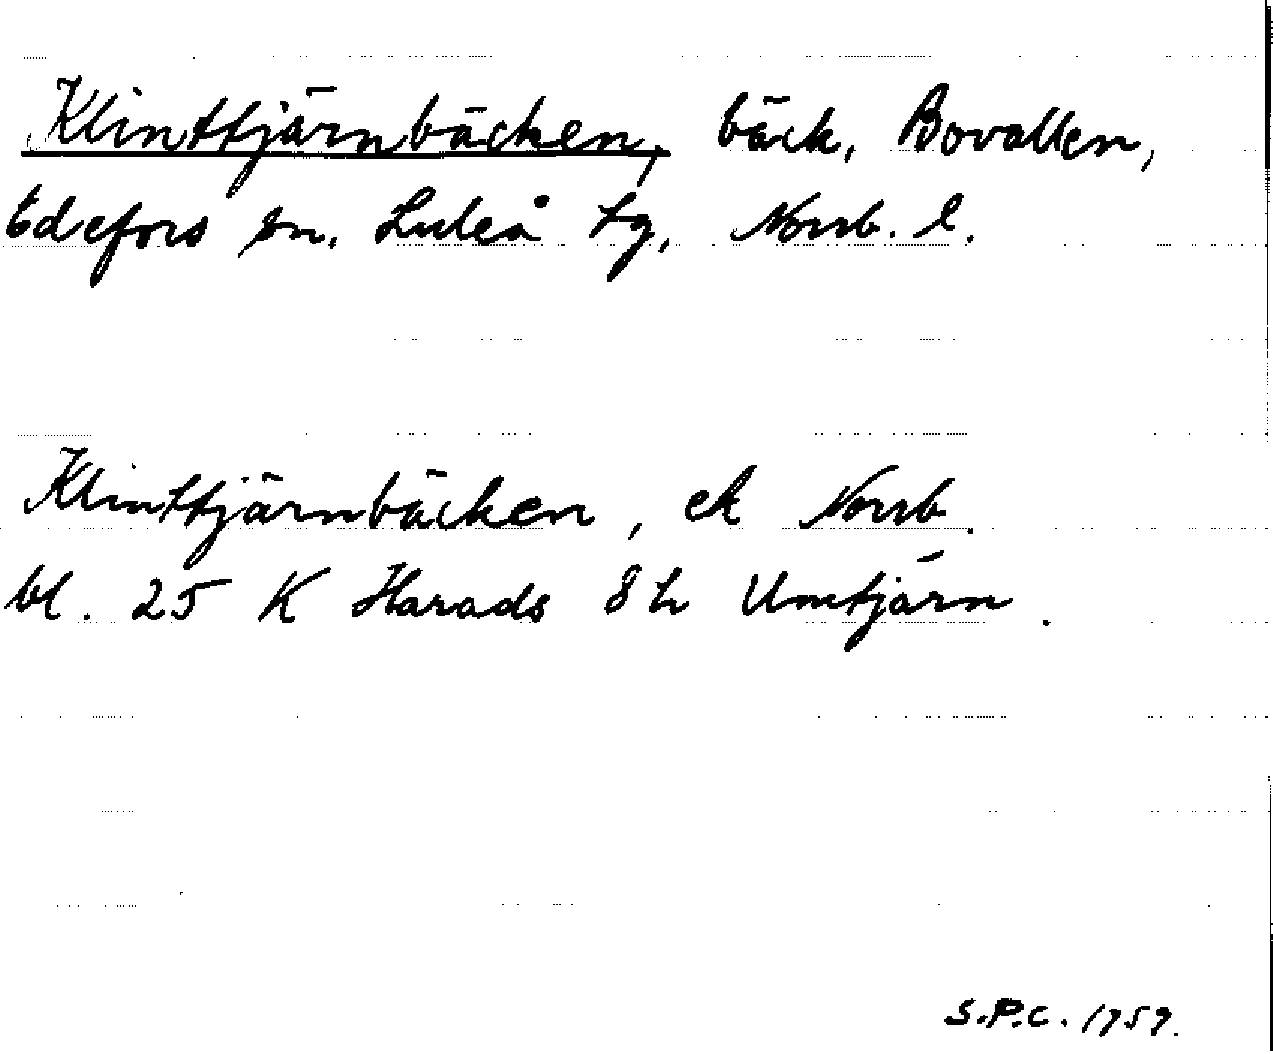 Klinttjärnbäcken, bäck, Bovallen,
Edefors sn. Luleå tg, Norrb. l.
Klinttjärnbäcken, ek Norrb.
bl. 25 K Harads 8 h Umtjärn.
S.P.C. 1959.